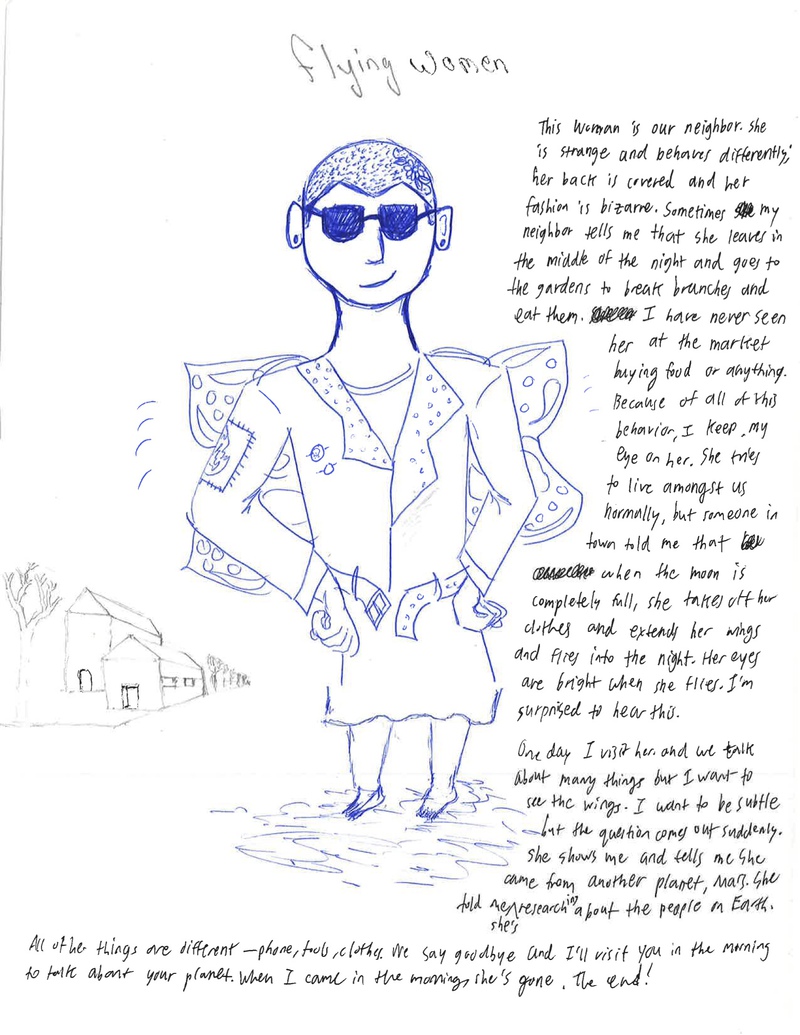 Flying women
This woman is our neighbor. She
is strange and behaves differently;
her back is covered and her
fashion is bizarre. Sometimes my
neighbor tells me that she leaves in
the middle of the night and goes to
the gardens to break branches and
eat them. I have never seen
her at the market
buying food or anything.
Because of all of this
behavior, I keep my
eye on her. She tries
to live amongst us
normally, but someone in
town told me that
when the moon is
completely full, she takes off her
clothes and extends her wings
and flies into the night. Her eyes
are bright when she flies. I'm
surprised to hear this.
One day I visit her and we talk
about many things but I want to
see the wings. I want to be subtle
but the question comes out suddenly.
She shows me and tells me she
came from another planet, Mars. She
told me she's researching about the people on Earth.
All other things are different – phone, tools, clothes. We say goodbye and I'll visit you in the morning
to talk about your planet. When I came in the morning, she's gone. The end!